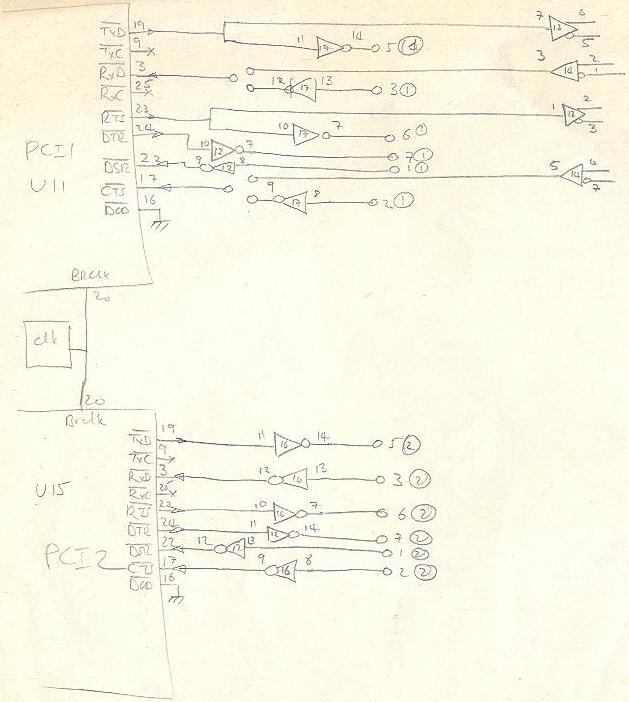 TxD 19 7 13 6
5
TxC 9 11 17 14 5 14
RxD 3 3 14 2
1
RxC 25 12 17 13 3 1
RTS 23 1 13 2
3
DTR 24 10 17 7 6 1
PCI1 10 12 7 7 1
DSR 22 9 12 8 1 1
U11 5 14 6
7
CTS 17 9 17 8 2 1
DCD 16
BRClk
20
clk
20
Brclk
TxD 19 11 16 14 5 2
TxC 9
RxD 3 12 16 13 3 2
U15 RxC 25
RTS 23 10 16 7 6 2
DTR 24 11 12 14 7 2
PCI2 DSR 22 12 12 13 1 2
CTS 17 9 16 8 2 2
DCD 16